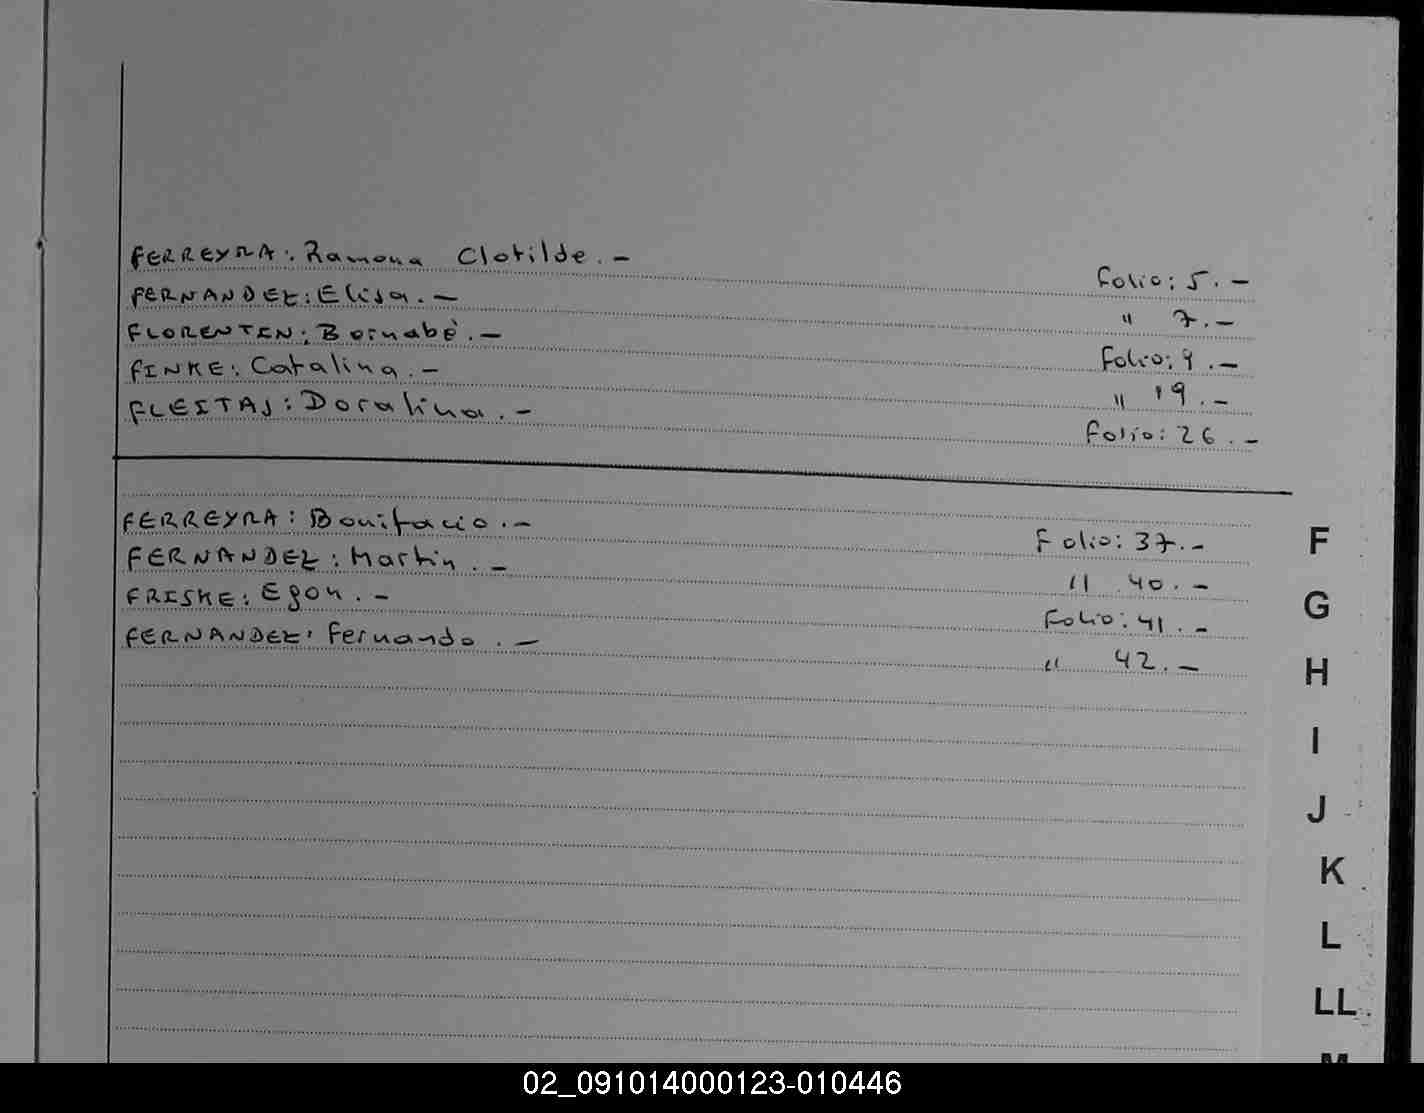 FERREYRA: Ramona Clotilde.- Folio: 5.-
FERNANDEZ: Elisa.- " 7.-
FLORENTIN: Bernabé.- Folio: 9.-
FINKE: Catalina.- " 19.-
FLEITAS: Doralina.- Folio: 26.-
FERREYRA: Bonifacio.- Folio: 37.-
FERNANDEZ: Martin.- " 40.-
FRISKE: Egon.- Folio: 41.-
FERNANDEZ: Fernando.- " 42.-
F
G
H
I
J
K
L
LL
M
02_091014000123-010446